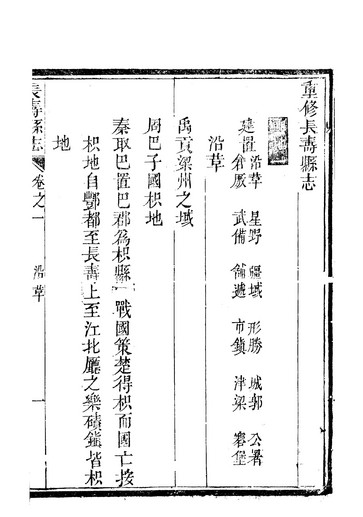 重修長壽縣志
建置 沿革 星野 疆域 形勝 城郭 公署
倉廒 武備 舖遞 市鎮 津梁 寨堡
沿革
禹貢梁州之域
周巴子國枳地
秦取巴置巴郡為枳縣 戰國策楚得枳而國亡按
枳地自酆都至長壽上至江北廳之樂磧鎮皆枳
地
長壽縣志 卷之一 沿革 一